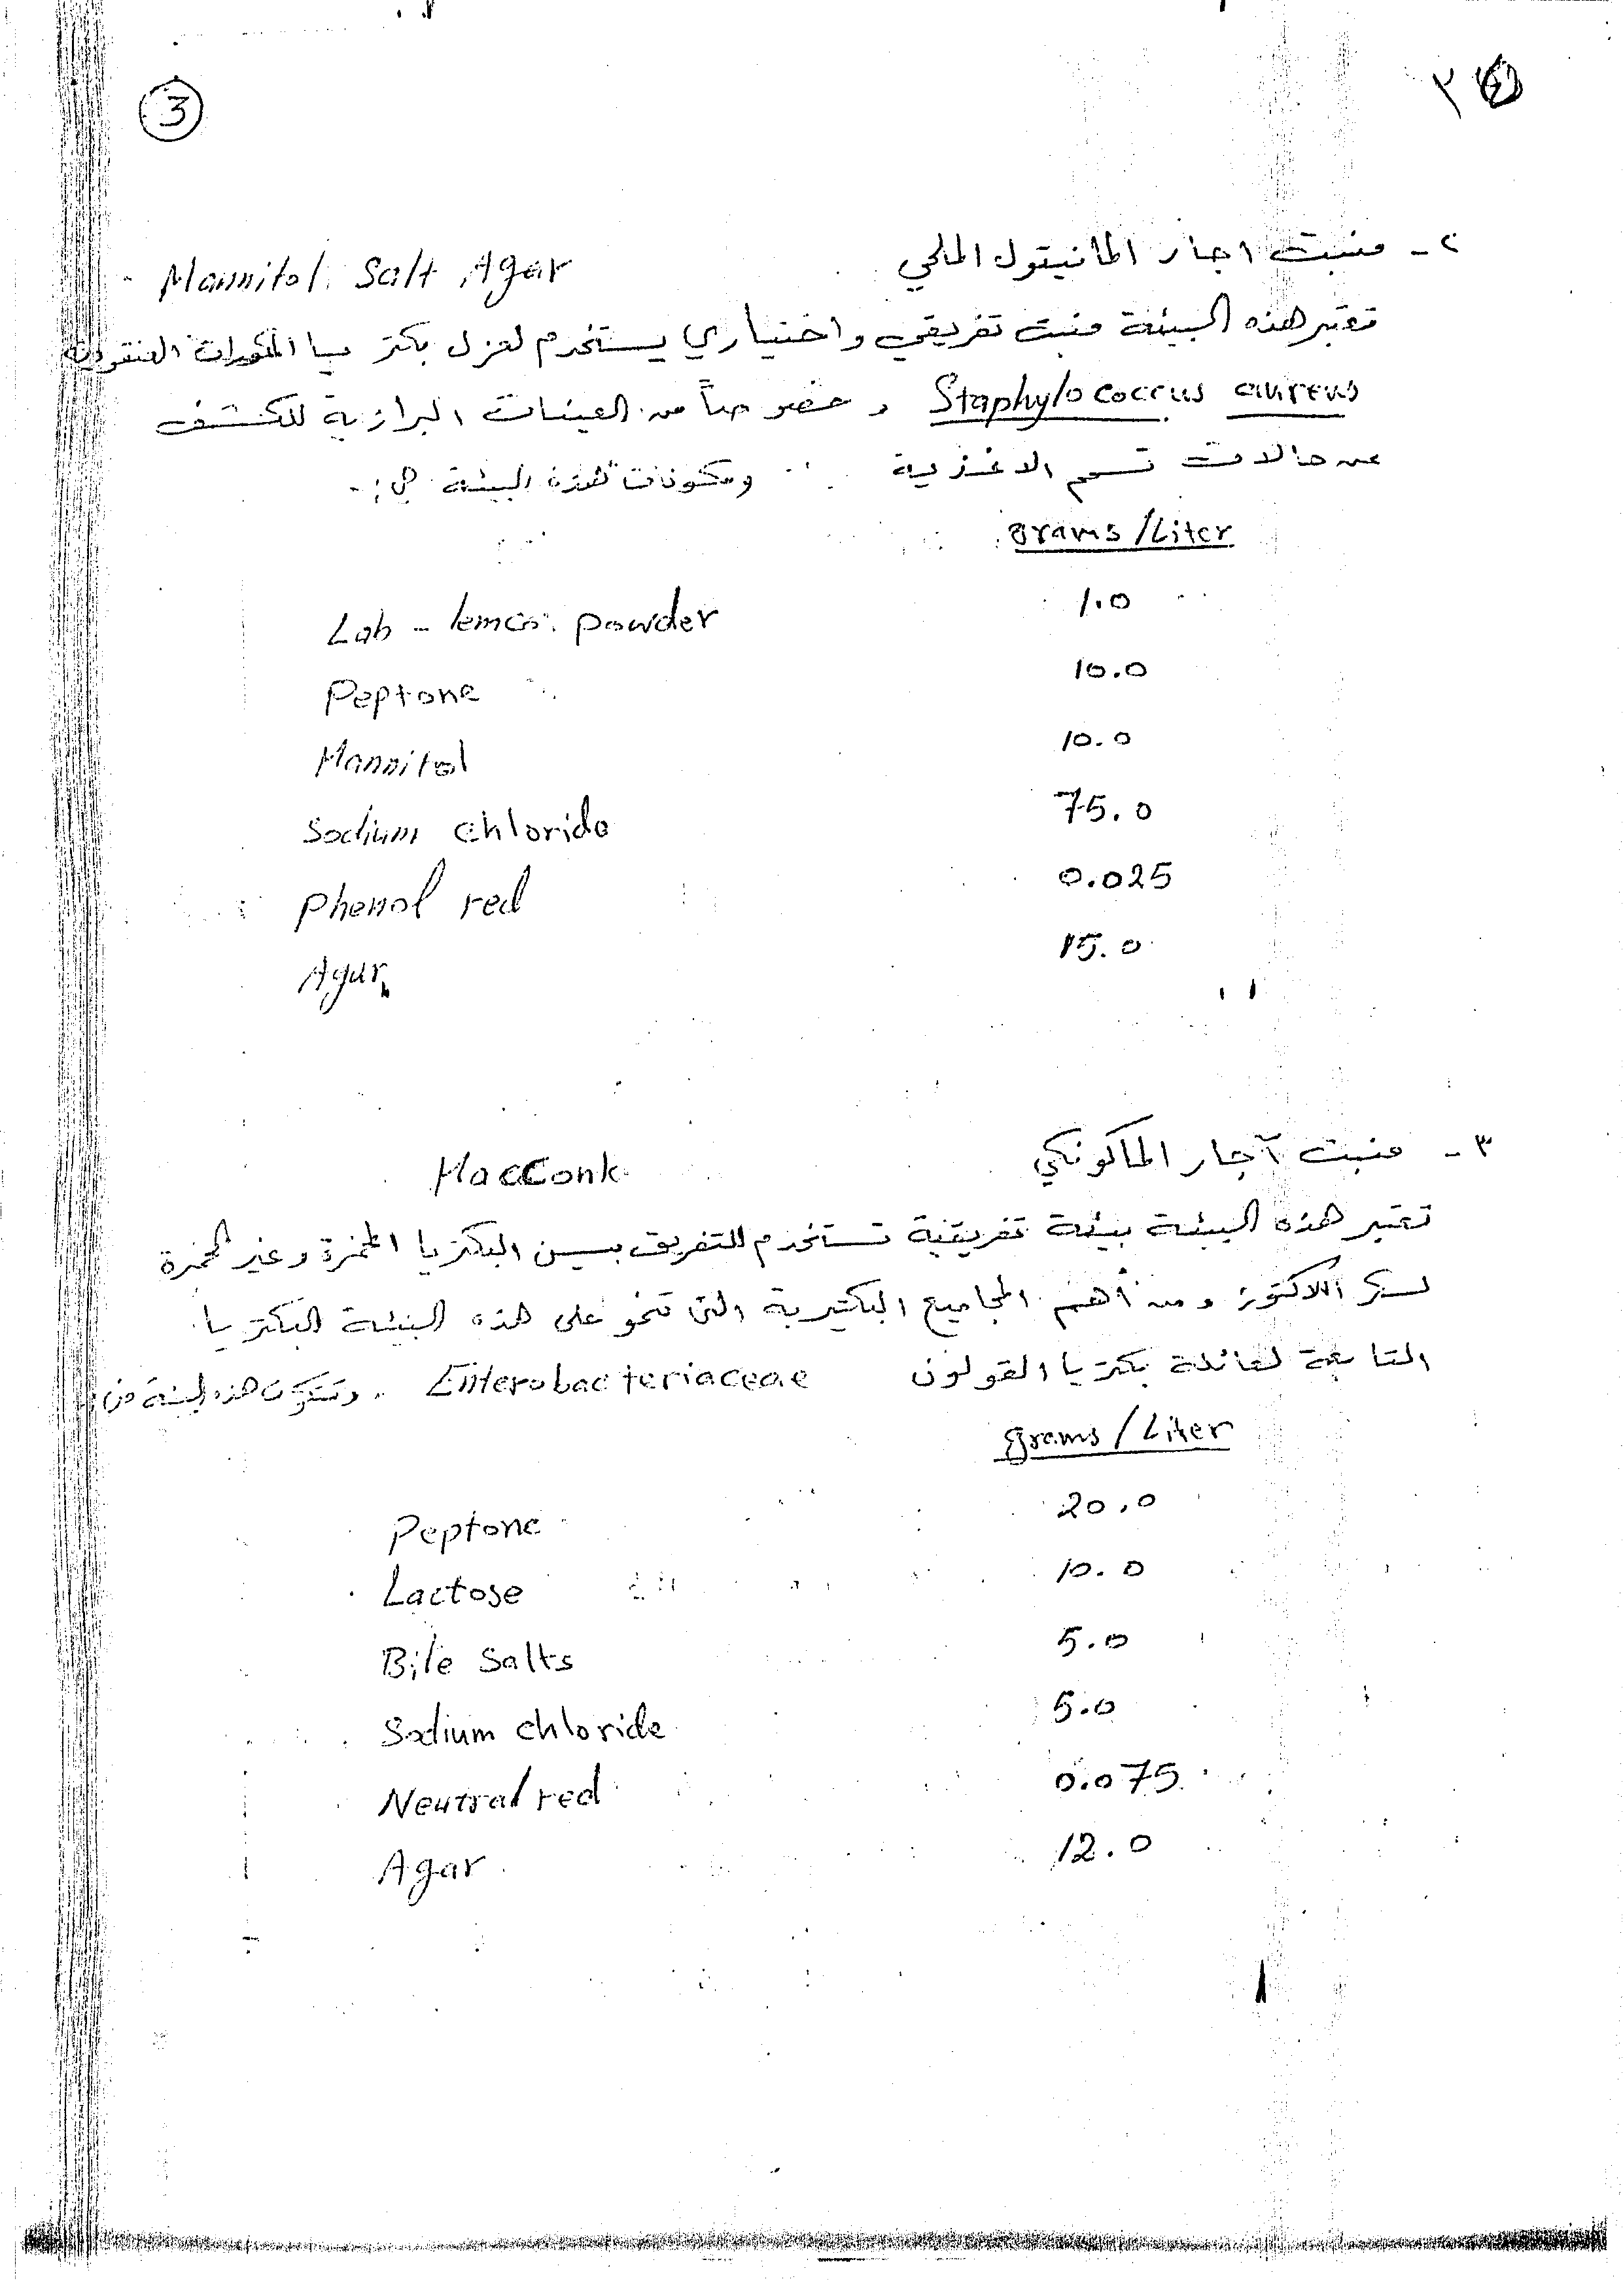 3
٣
٢- منبت اجار المانيتول الملحي Mannitol Salt Agar
تعتبر هذه البيئة منبت تفريقي واختياري يستخدم لعزل بكتريا المكورات العنقودية
Staphylococcus aureus وخصوصاً من العينات البرازية للكشف
عن حالات تسمم الاغذية ومكونات هذه البيئة هي:-
grams/Liter
Lab-lemco powder 1.0
Peptone 10.0
Mannitol 10.0
Sodium chloride 75.0
Phenol red 0.025
Agar 15.0
٣- منبت آجار الماكونكي MacConk
تعتبر هذه البيئة بيئة تفريقية تستخدم للتفريق بين البكتريا المخمرة وغير المخمرة
لسكر اللاكتوز ومن أهم المجاميع البكتيرية التي تنمو على هذه البيئة البكتريا
التابعة لعائلة بكتريا القولون Enterobacteriaceae . وتتكون هذه البيئة من:
grams/Liter
Peptone 20.0
Lactose 10.0
Bile Salts 5.0
Sodium chloride 5.0
Neutral red 0.075
Agar 12.0